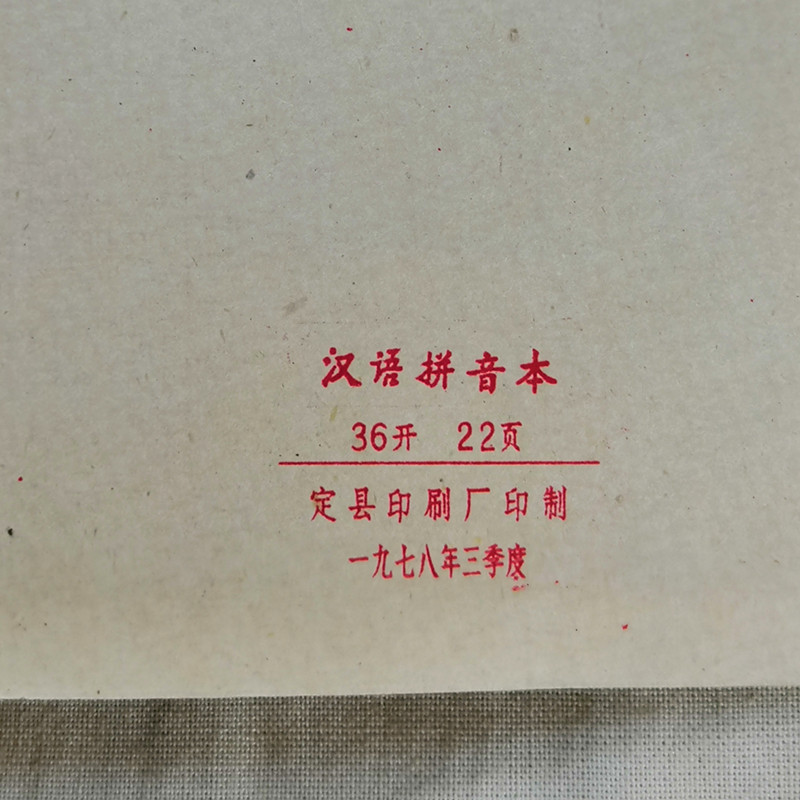 汉语拼音本
36开 22页
定县印刷厂印制
一九七八年三季度